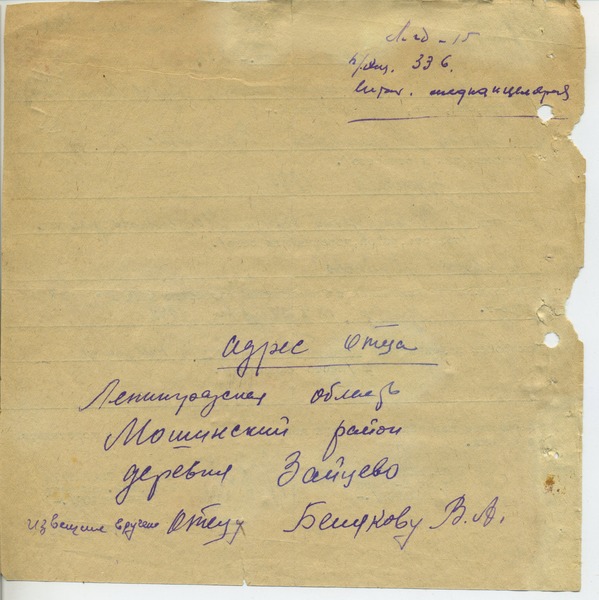 Л-д-15
п/ящ. 336.
медканцелярия
адрес отца
Ленинградская область
Мошинский район
деревня Зайцево
извещение вручено отцу Белякову В.А.